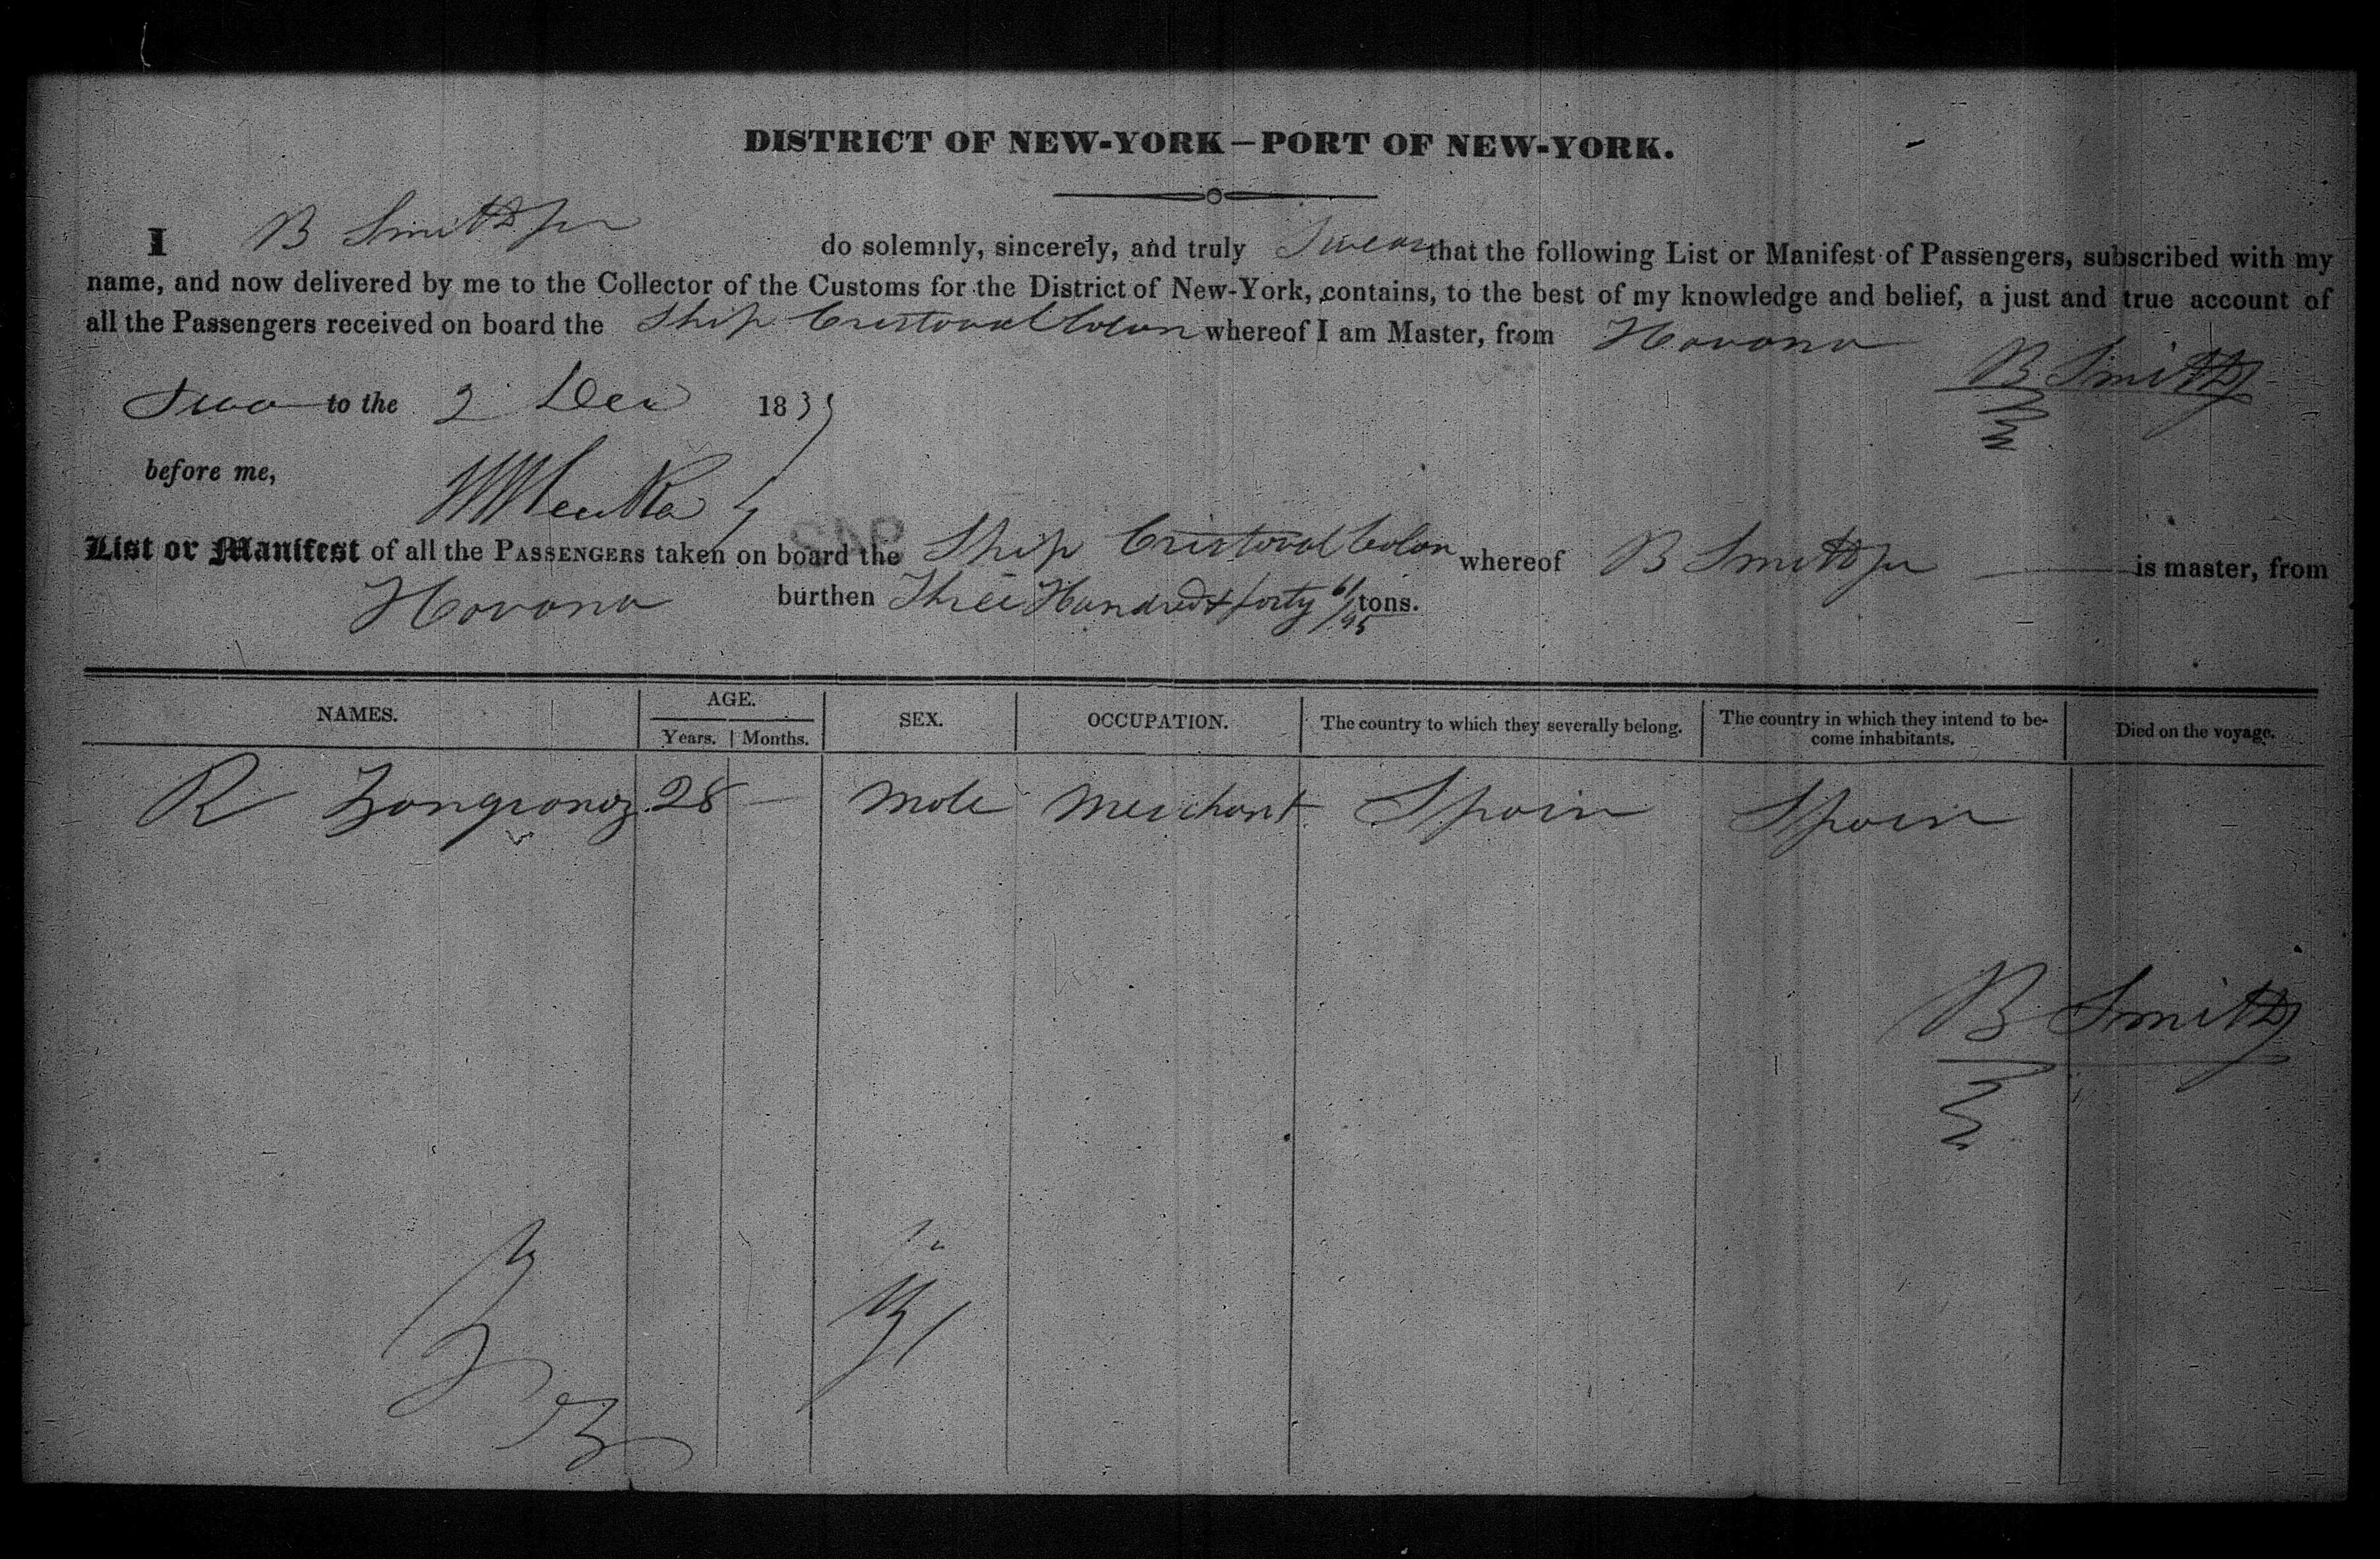 DISTRICT OF NEW-YORK—PORT OF NEW-YORK.
I B Smith Jr do solemnly, sincerely, and truly Swear that the following List or Manifest of Passengers, subscribed with my
name, and now delivered by me to the Collector of the Customs for the District of New-York, contains, to the best of my knowledge and belief, a just and true account of
all the Passengers received on board the Ship Cristoval Colon whereof I am Master, from Havana
B Smith
to the 2 Dec 183
before me,
List or Manifest of all the PASSENGERS taken on board the Ship Cristoval Colon whereof B Smith Jr is master, from
Havana burthen Three Hundred & forty 61/95 tons.
NAMES. AGE. SEX. OCCUPATION. The country to which they severally belong. The country in which they intend to be-
come inhabitants. Died on the voyage.
Years. Months.
R Zangronez 28 — Male Merchant Spain Spain
B Smith